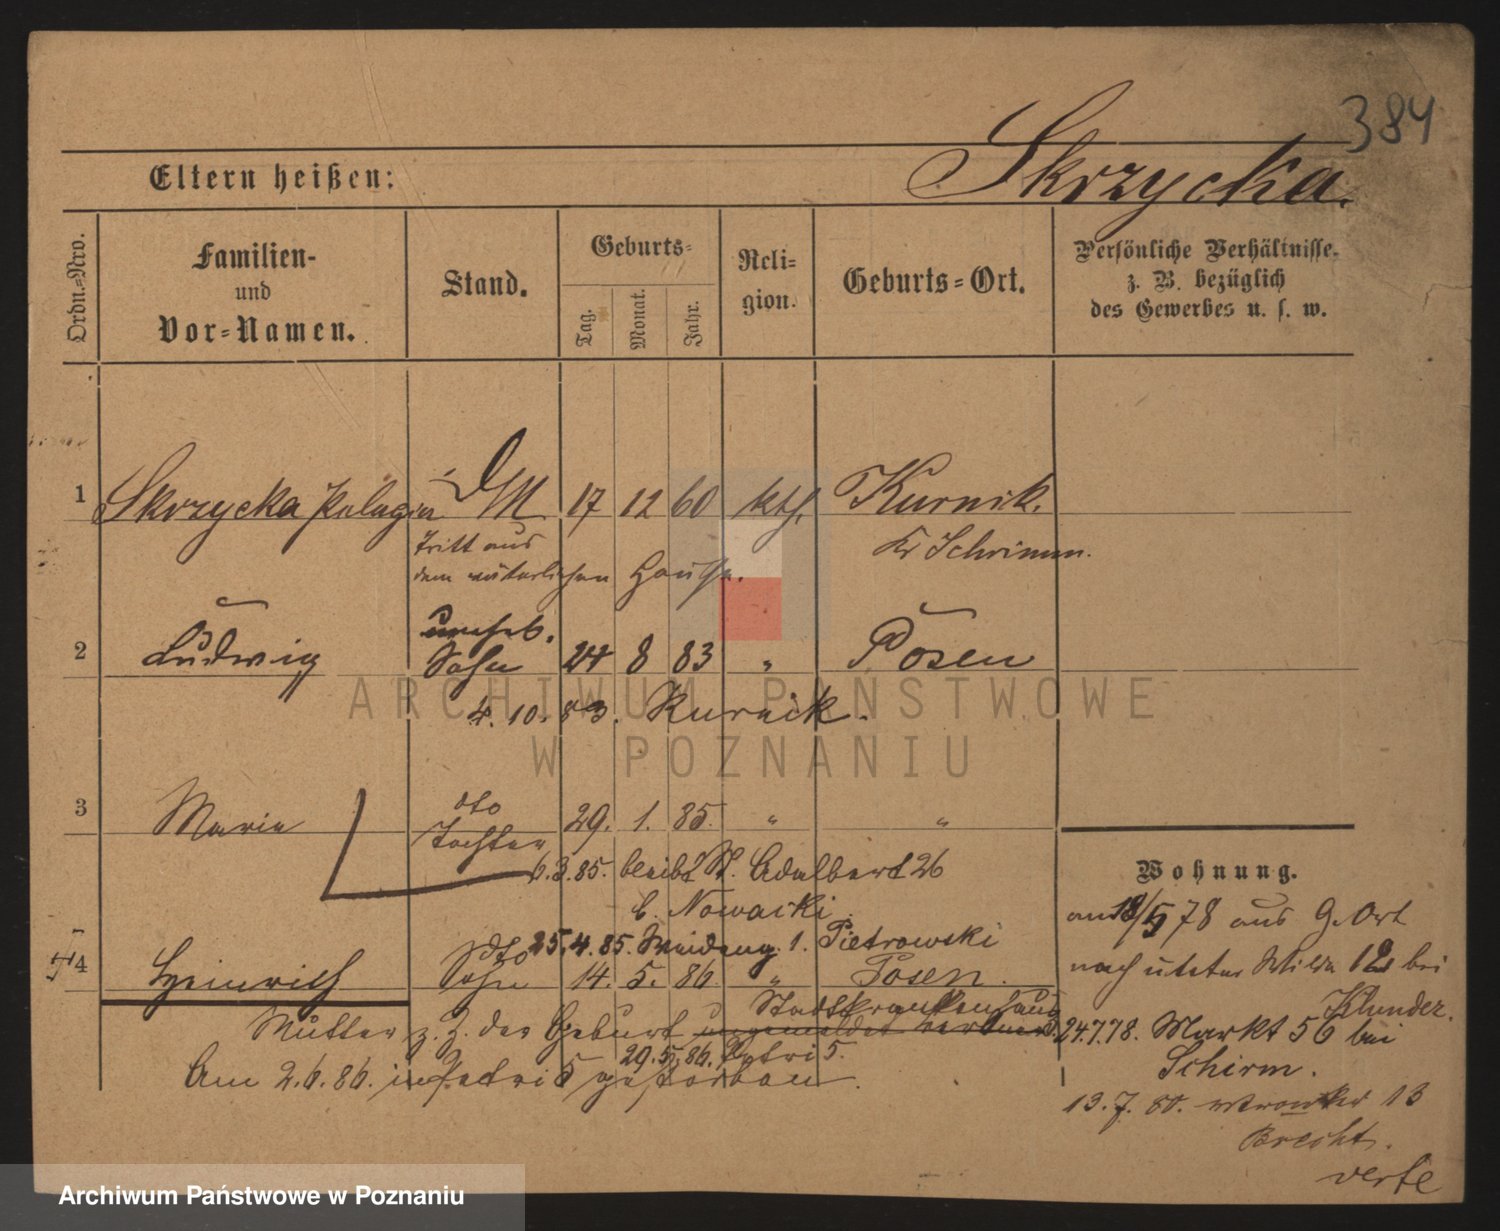 384
Skrzycka.
Eltern heißen:
Ordn.=Nro.
Familien-
und
Vor=Namen.
Stand.
Geburts=
Tag.
Monat.
Jahr.
Reli=
gion.
Geburts=Ort.
Persönliche Verhältnisse
z. B. bezüglich
des Gewerbes u. s. w.
1 Skrzycka Pelagia DM 17 12 60 kth. Kurnik.
Tritt aus Kr Schrimm.
dem väterlichen Hause.
2 Ludwig unehel. Sohn 24 8 83 " Posen
4. 10. 83. Kurnik.
3 Marie dto Tochter 29. 1. 85. " "
6.3.85. bleibt St. Adalbert 26
b. Nowacki
25.4.85. 1. Pietrowski
4 Heinrich dto Sohn 14. 5. 86 " Posen.
Stadtkrankenhaus
Mutter z. Z. der Geburt
29.5.86. Petri 5.
Am 2.6.86. in Petri 5 gestorben.
Wohnung.
am 18/5 78 aus G. Ort
nach Wilda 12 bei
Klunder.
24.7.78. Markt 56 bei
Schirm.
13. 7. 80. 13
Brecht.
verte
ARCHIWUM PAŃSTWOWE
W POZNANIU
Archiwum Państwowe w Poznaniu